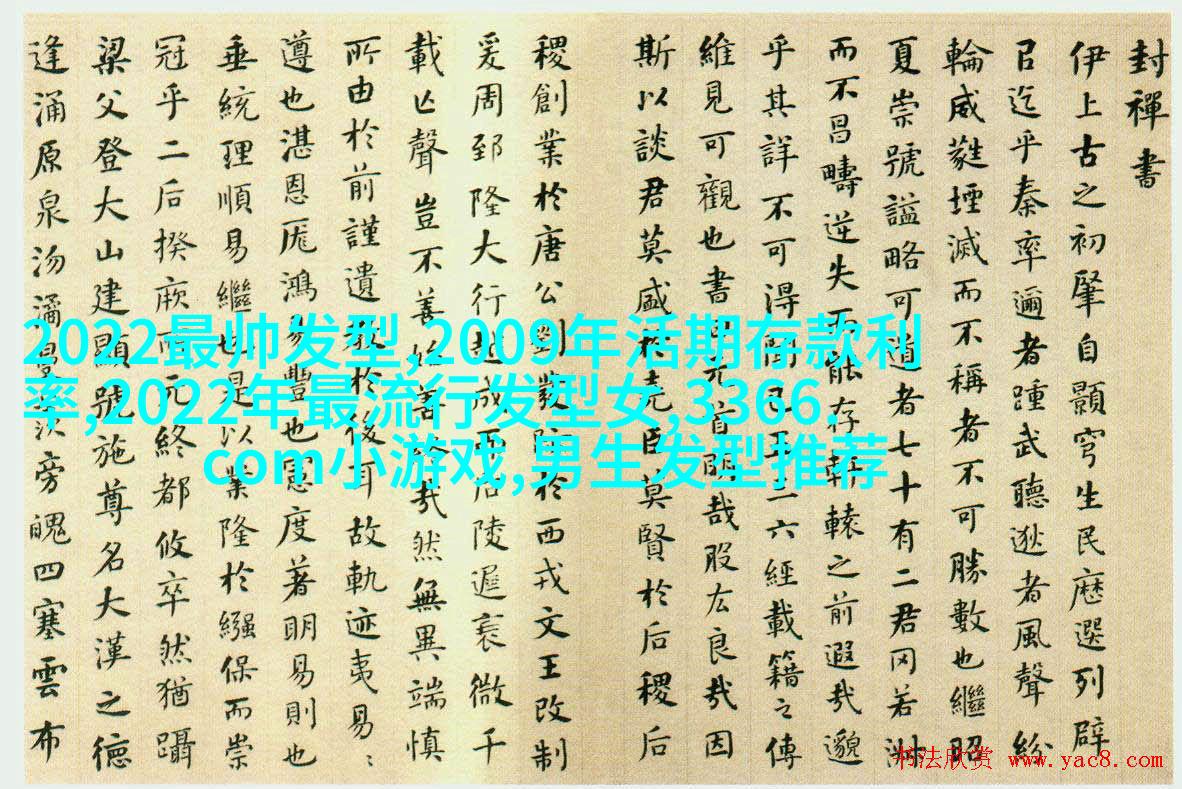 封禪書
伊上古之初肇自顥穹生民歷選列辟
以迄乎秦率邇者踵武聽逖者風聲紛
輪威蕤堙滅而不稱者不可勝數也繼昭
夏崇號謚略可道者七十有二君罔若淑
而不昌疇逆失而能存軒轅之前遐哉邈
乎其詳不可得聞已五三六經載籍之傳
維見可觀也書曰元首明哉股肱良哉因
斯以談君莫盛於堯臣莫賢於后稷后
稷創業於唐公劉發跡於西戎文王改制
爰周郅隆大行越成而后陵遲衰微千
載亡聲豈不善始善終哉然無異端慎
所由於前謹遺教於後耳故軌迹夷易
遵也湛恩厖鴻易豐也憲度著明易則也
垂統理順易繼也是以業隆於繦保而崇
冠乎二后揆厥所元終都攸卒然猶躡
梁父登大山建顯號施尊名大漢之德
逢涌原泉沕潏曼羨旁魄四塞雲布
2022最帅发型,2009年活期存款利
率,2022年最流行发型女,3366.
com小游戏,男生发型推荐
书法欣赏 www.yac8.com